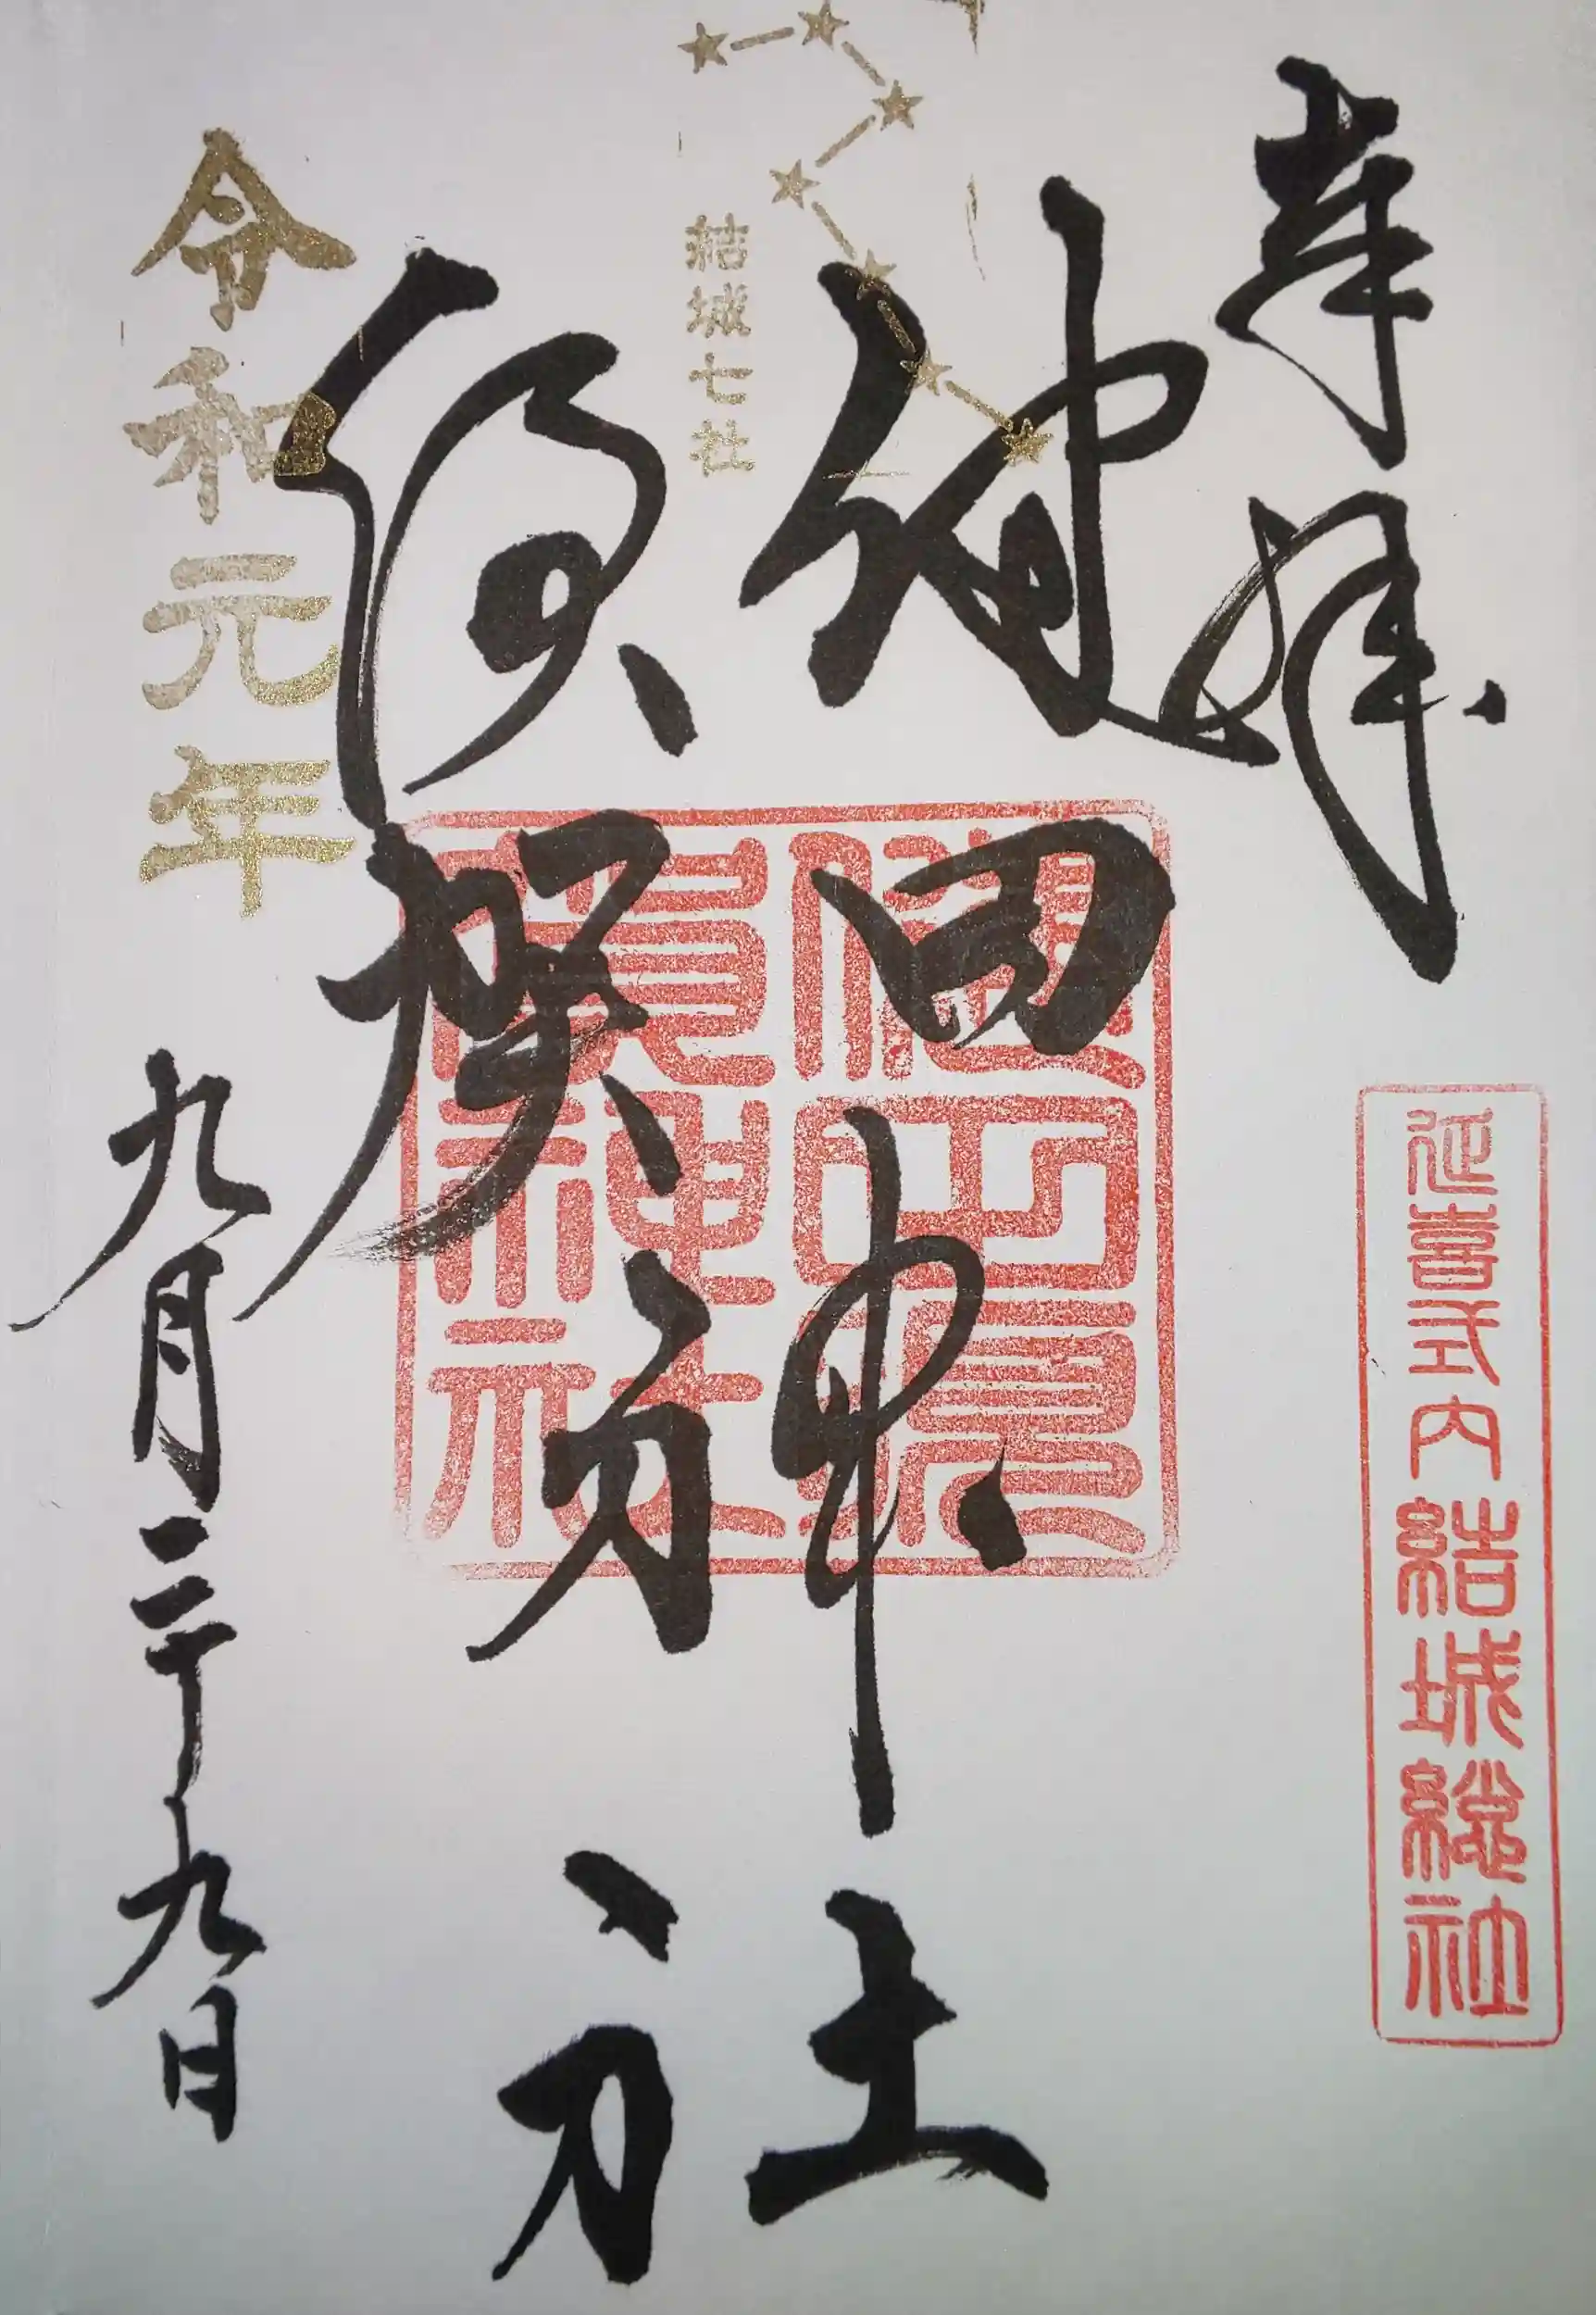 奉拝
延喜式内結城總社
健田
須賀
神社
結城七社
健田須賀神社
令和元年
九月二十九日